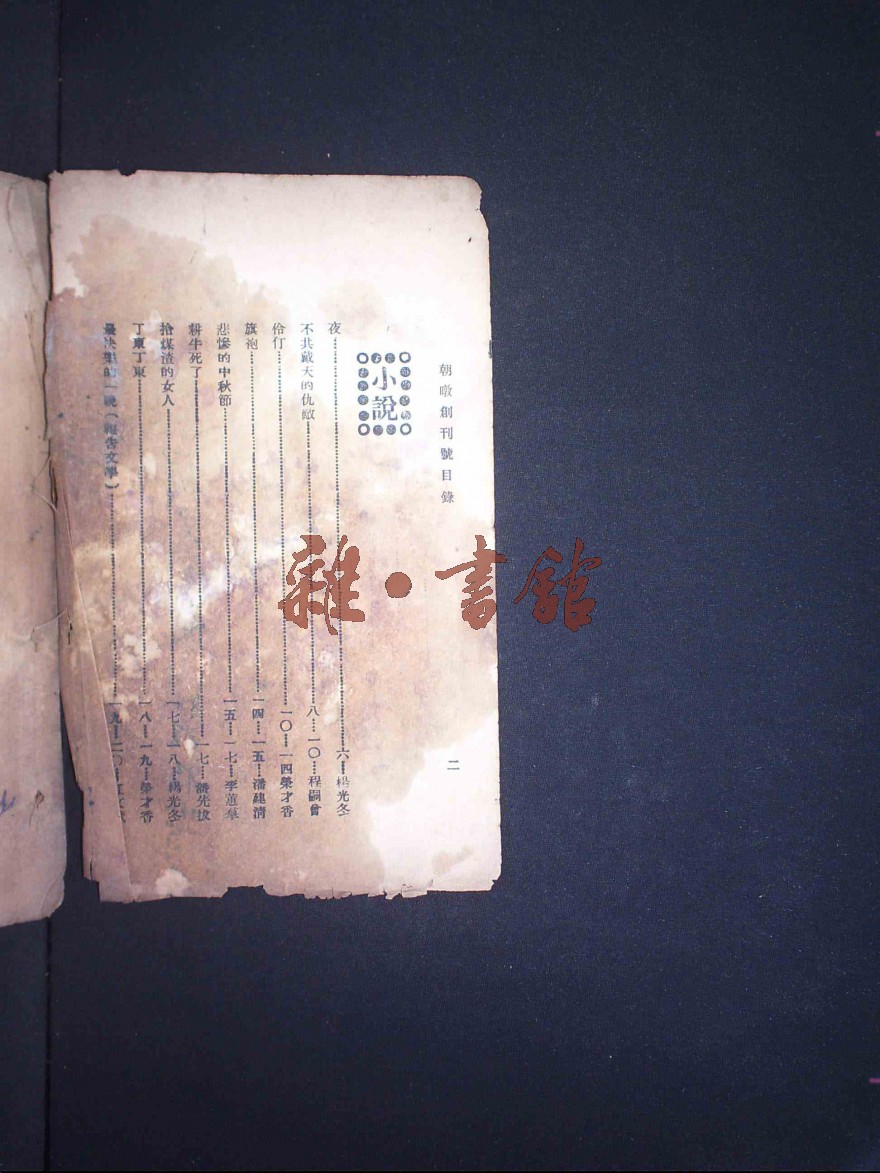 朝暾創刊號目錄
二
小說
夜……六…楊光冬
不共戴天的仇敵……八…一〇…程嗣曾
伶仃……一〇…一四榮才香
旗袍……一四…一五…潘建清
悲慘的中秋節……一五…一七…李
耕牛死了……一七…潘先拔
拾煤渣的女人……一七…一八…楊光冬
丁東丁東……一八…一九…榮才香
最快樂的一晚（報告文學）……一九…二〇…
雜·書館